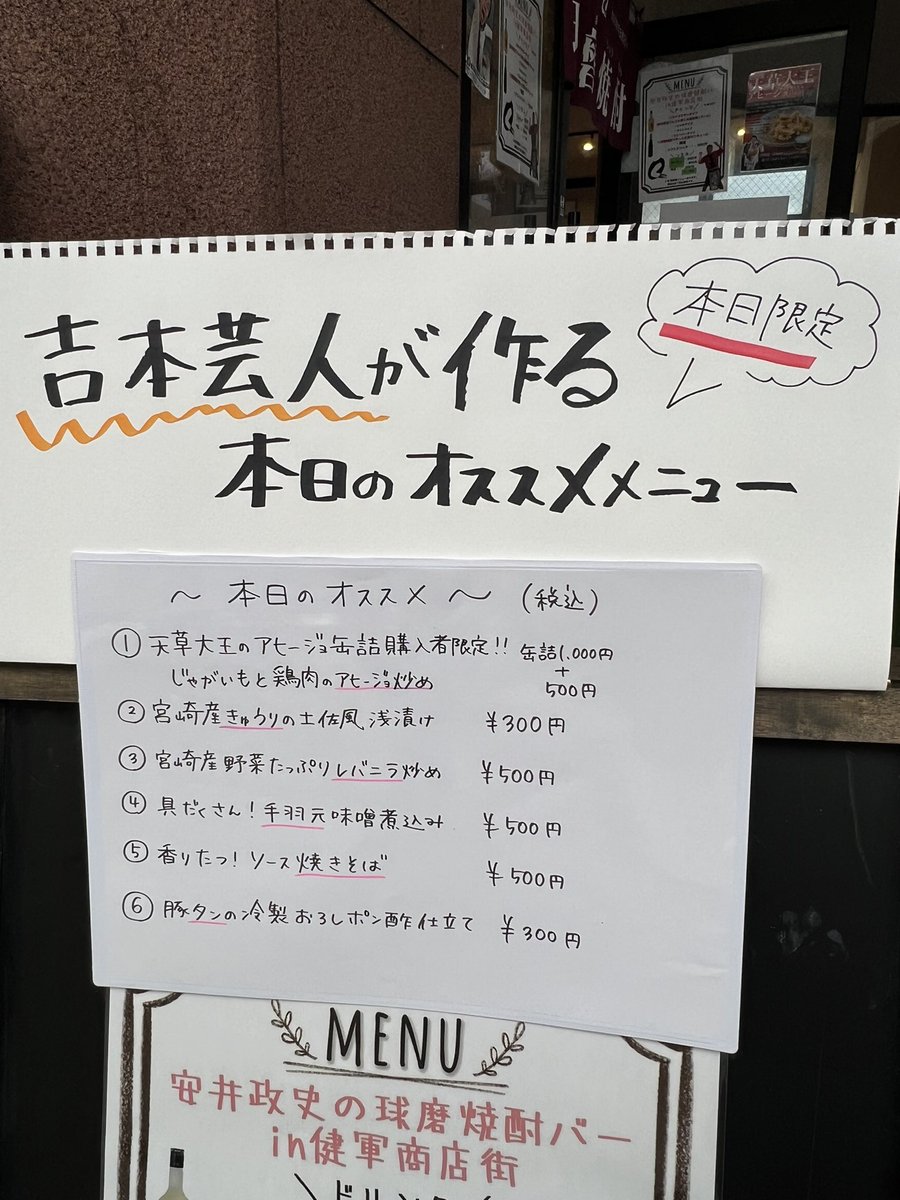 MENU
天草大王
本日限定
吉本芸人が作る
本日のオススメメニュー
～ 本日のオススメ ～ (税込)
① 天草大王のアヒージョ缶詰購入者限定!! 缶詰1,000円
+
じゃがいもと鶏肉のアヒージョ炒め 500円
② 宮崎産きゅうりの土佐風浅漬け ¥300円
③ 宮崎産野菜たっぷりレバニラ炒め ¥500円
④ 具だくさん!手羽元味噌煮込み ¥500円
⑤ 香りたつ!ソース焼きそば ¥500円
⑥ 豚タンの冷製おろしポン酢仕立て ¥300円
MENU
安井政史の球磨焼酎バー
in健軍商店街